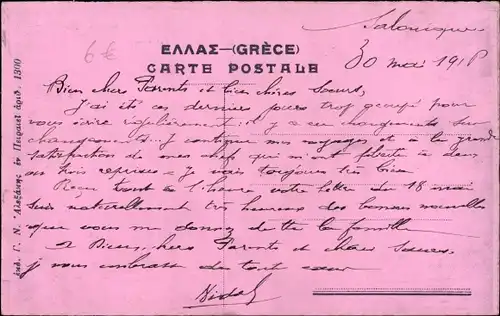 Salonique
6 €
ΕΛΛΑΣ—(GRÈCE)
30 mai 191
CARTE POSTALE
Bien chers Parents et bien chères Soeurs,
J'ai été ces derniers jours trop occupé pour
vous écrire régulièrement. il y a eu changements sur
changements. Je continue mes voyages et à la grande
satisfaction de mes chefs qui m'ont félicité à deux
ou trois reprises — Je vais toujours très bien
Reçu tout à l'heure votre lettre du 18 mai
suis naturellement très heureux des bonnes nouvelles
que vous me donnez de tte la famille
Bien chers Parents et chères Soeurs
je vous embrasse de tout coeur
Vidal
Εκδ. Γ. Ν. Αλεξάκης εν Πειραιεί αριθ. 1300